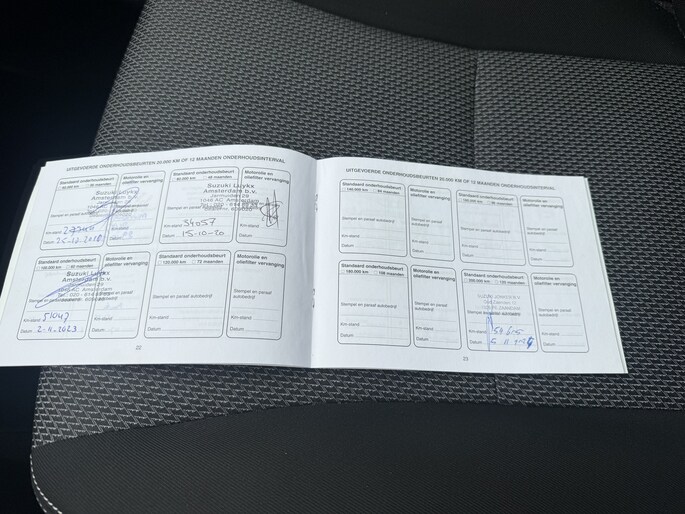 UITGEVOERDE ONDERHOUDSBEURTEN 20.000 KM OF 12 MAANDEN ONDERHOUDSINTERVAL
Standaard onderhoudsbeurt
Suzuki Luykx
Amsterdam b.v.
Stempel en paraaf autobedrijf
Km-stand
Datum
Motorolie en
oliefilter vervanging
Standaard onderhoudsbeurt
48 maanden
Suzuki Luykx
Amsterdam b.v.
1046 AC Amsterdam
Stempel en paraaf autobedrijf
Km-stand 34057
Datum 15-10-20
Motorolie en
oliefilter vervanging
Standaard onderhoudsbeurt
100.000 km 60 maanden
Suzuki Luykx
Amsterdam b.v.
1046 AC Amsterdam
Km-stand 51047
Datum 2-4-2023
Motorolie en
oliefilter vervanging
Standaard onderhoudsbeurt
120.000 km 72 maanden
Stempel en paraaf autobedrijf
Km-stand
Datum
Motorolie en
oliefilter vervanging
22
UITGEVOERDE ONDERHOUDSBEURTEN 20.000 KM OF 12 MAANDEN ONDERHOUDSINTERVAL
Standaard onderhoudsbeurt
140.000 km 84 maanden
Stempel en paraaf autobedrijf
Km-stand
Datum
Motorolie en
oliefilter vervanging
Standaard onderhoudsbeurt
160.000 km 96 maanden
Stempel en paraaf autobedrijf
Km-stand
Datum
Motorolie en
oliefilter vervanging
Standaard onderhoudsbeurt
180.000 km 108 maanden
Stempel en paraaf autobedrijf
Km-stand
Datum
Motorolie en
oliefilter vervanging
Standaard onderhoudsbeurt
200.000 km 120 maanden
Stempel en paraaf autobedrijf
Km-stand
Datum
Motorolie en
oliefilter vervanging
23